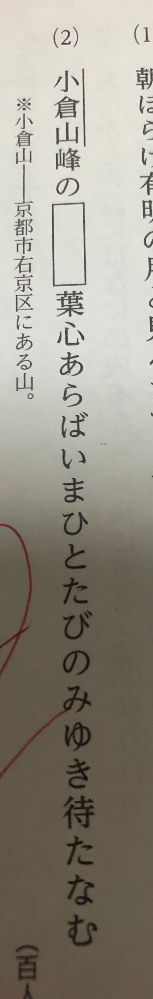 (1)
朝ぼらけ有明の月と見
(2)
小倉山峰の 葉心あらばいまひとたびのみゆき待たなむ
※小倉山――京都市右京区にある山。
(百人